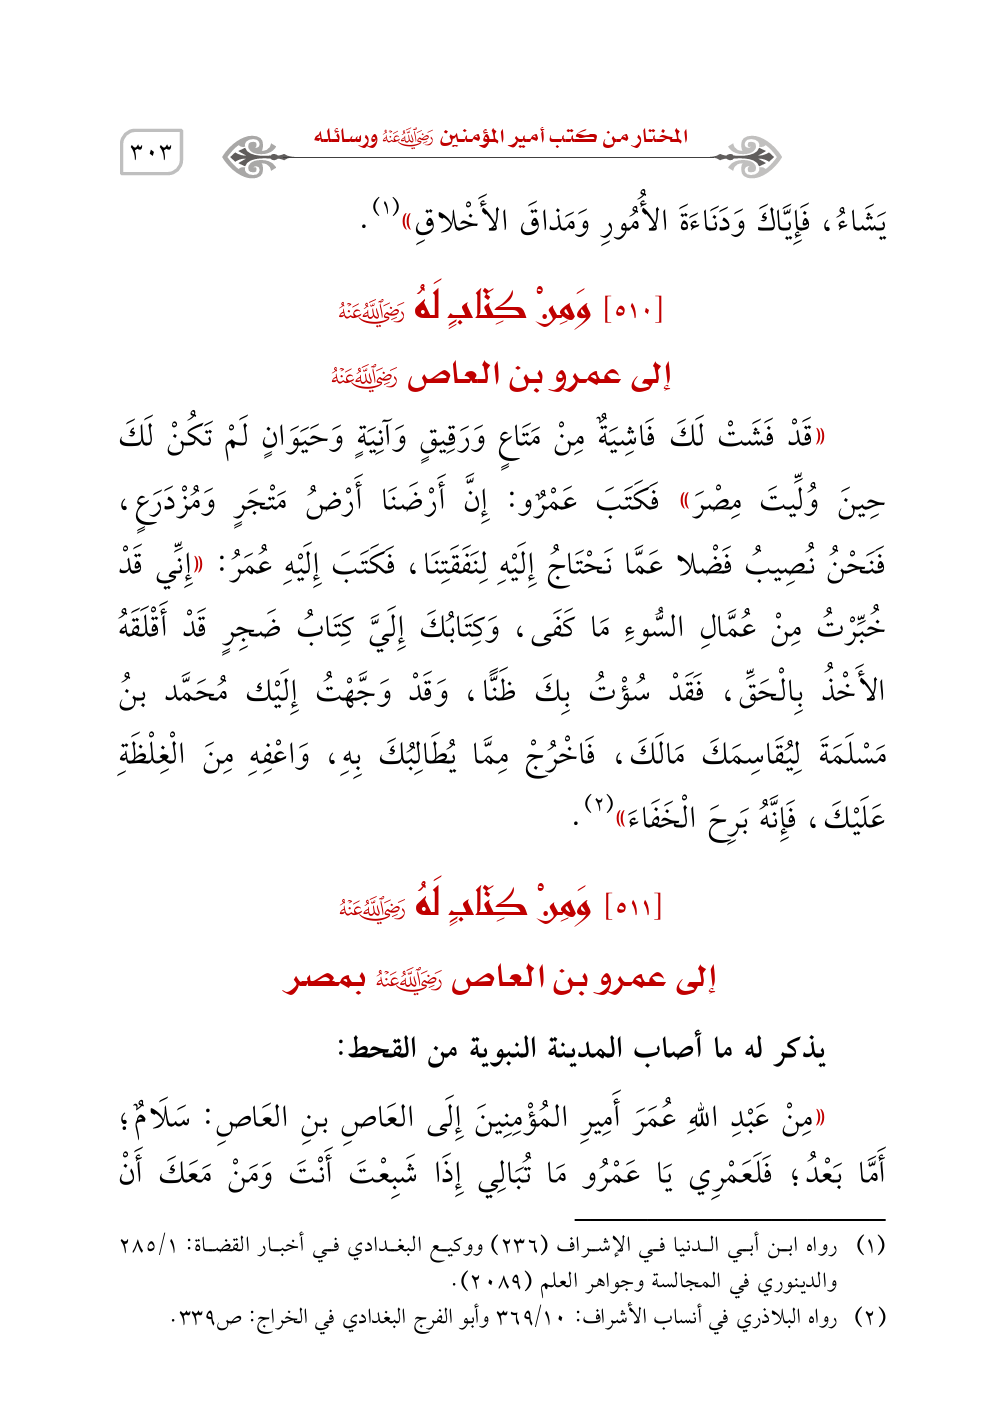 المختار من كتب أمير المؤمنين رَضِيَ اللَّهُ عَنْهُ ورسائله
٣٠٣
يَشَاءُ، فَإِيَّاكَ وَدَنَاءَةَ الأُمُورِ وَمَذاقَ الأَخْلاقِ»(١).
[٥١٠] وَمِنْ كِتَابٍ لَهُ رَضِيَ اللَّهُ عَنْهُ
إلى عمرو بن العاص رَضِيَ اللَّهُ عَنْهُ
«قَدْ فَشَتْ لَكَ فَاشِيَةٌ مِنْ مَتَاعٍ وَرَقِيقٍ وَآنِيَةٍ وَحَيَوَانٍ لَمْ تَكُنْ لَكَ
حِينَ وُلِّيتَ مِصْرَ» فَكَتَبَ عَمْرٌو: إِنَّ أَرْضَنَا أَرْضُ مَتْجَرٍ وَمُزْدَرَعٍ،
فَنَحْنُ نُصِيبُ فَضْلا عَمَّا نَحْتَاجُ إِلَيْهِ لِنَفَقَتِنَا، فَكَتَبَ إِلَيْهِ عُمَرُ: «إِنِّي قَدْ
خُبِّرْتُ مِنْ عُمَّالِ السُّوءِ مَا كَفَى، وَكِتَابُكَ إِلَيَّ كِتَابُ ضَجِرٍ قَدْ أَقْلَقَهُ
الأَخْذُ بِالْحَقِّ، فَقَدْ سُؤْتُ بِكَ ظَنًّا، وَقَدْ وَجَّهْتُ إِلَيْك مُحَمَّد بنُ
مَسْلَمَةَ لِيُقَاسِمَكَ مَالَكَ، فَاخْرُجْ مِمَّا يُطَالِبُكَ بِهِ، وَاعْفِهِ مِنَ الْغِلْظَةِ
عَلَيْكَ، فَإِنَّهُ بَرِحَ الْخَفَاءَ»(٢).
[٥١١] وَمِنْ كِتَابٍ لَهُ رَضِيَ اللَّهُ عَنْهُ
إلى عمرو بن العاص رَضِيَ اللَّهُ عَنْهُ بمصر
يذكر له ما أصاب المدينة النبوية من القحط:
«مِنْ عَبْدِ اللهِ عُمَرَ أَمِيرِ المُؤْمِنِينَ إِلَى العَاصِ بنِ العَاصِ: سَلَامٌ؛
أَمَّا بَعْدُ؛ فَلَعَمْرِي يَا عَمْرُو مَا تُبَالِي إِذَا شَبِعْتَ أَنْتَ وَمَنْ مَعَكَ أَنْ
(١) رواه ابـن أبـي الـدنيا فـي الإشـراف (٢٣٦) ووكيـع البغـدادي فـي أخبـار القضـاة: ٢٨٥/١
والدينوري في المجالسة وجواهر العلم (٢٠٨٩).
(٢) رواه البلاذري في أنساب الأشراف: ٣٦٩/١٠ وأبو الفرج البغدادي في الخراج: ص٣٣٩.